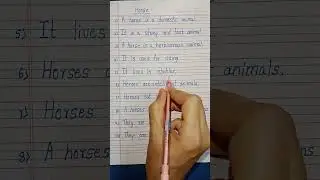 Horse
1) A horse is a domestic animal.
2) It is a strong and fast animal
3) A horse is a herbivorous animal.
4) It is used for riding.
5) It lives in stable.
6) Horses are intelligent animals.
7) Horses eat
8) A horse
9) They
10) They can
5) It lives
6) Horses
7) Horses
8) A horse
animals.